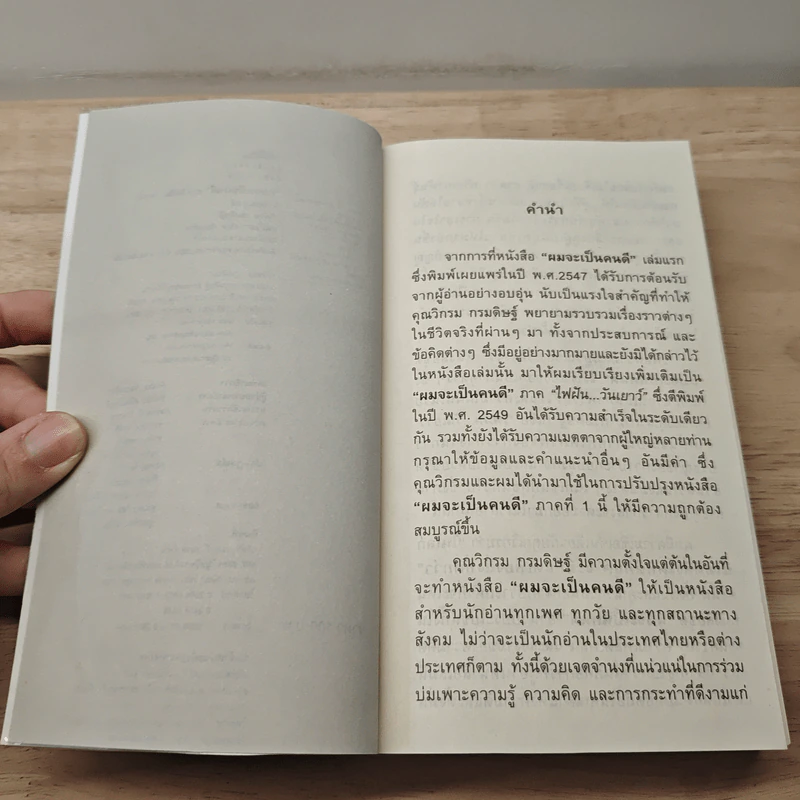 คำนำ
จากการที่หนังสือ “ผมจะเป็นคนดี” เล่มแรก
ซึ่งพิมพ์เผยแพร่ในปี พ.ศ.2547 ได้รับการต้อนรับ
จากผู้อ่านอย่างอบอุ่น นับเป็นแรงใจสำคัญที่ทำให้
คุณวิกรม กรมดิษฐ์ พยายามรวบรวมเรื่องราวต่างๆ
ในชีวิตจริงที่ผ่านๆ มา ทั้งจากประสบการณ์ และ
ข้อคิดต่างๆ ซึ่งมีอยู่อย่างมากมายและยังมิได้กล่าวไว้
ในหนังสือเล่มนั้น มาให้ผมเรียบเรียงเพิ่มเติมเป็น
“ผมจะเป็นคนดี” ภาค “ไฟฝัน...วันเยาว์” ซึ่งตีพิมพ์
ในปี พ.ศ. 2549 อันได้รับความสำเร็จในระดับเดียว
กัน รวมทั้งยังได้รับความเมตตาจากผู้ใหญ่หลายท่าน
กรุณาให้ข้อมูลและคำแนะนำอื่นๆ อันมีค่า ซึ่ง
คุณวิกรมและผมได้นำมาใช้ในการปรับปรุงหนังสือ
“ผมจะเป็นคนดี” ภาคที่ 1 นี้ ให้มีความถูกต้อง
สมบูรณ์ขึ้น
คุณวิกรม กรมดิษฐ์ มีความตั้งใจแต่ต้นในอันที่
จะทำหนังสือ “ผมจะเป็นคนดี” ให้เป็นหนังสือ
สำหรับนักอ่านทุกเพศ ทุกวัย และทุกสถานะทาง
สังคม ไม่ว่าจะเป็นนักอ่านในประเทศไทยหรือต่าง
ประเทศก็ตาม ทั้งนี้ด้วยเจตจำนงที่แน่วแน่ในการร่วม
บ่มเพาะความรู้ ความคิด และการกระทำที่ดีงามแก่